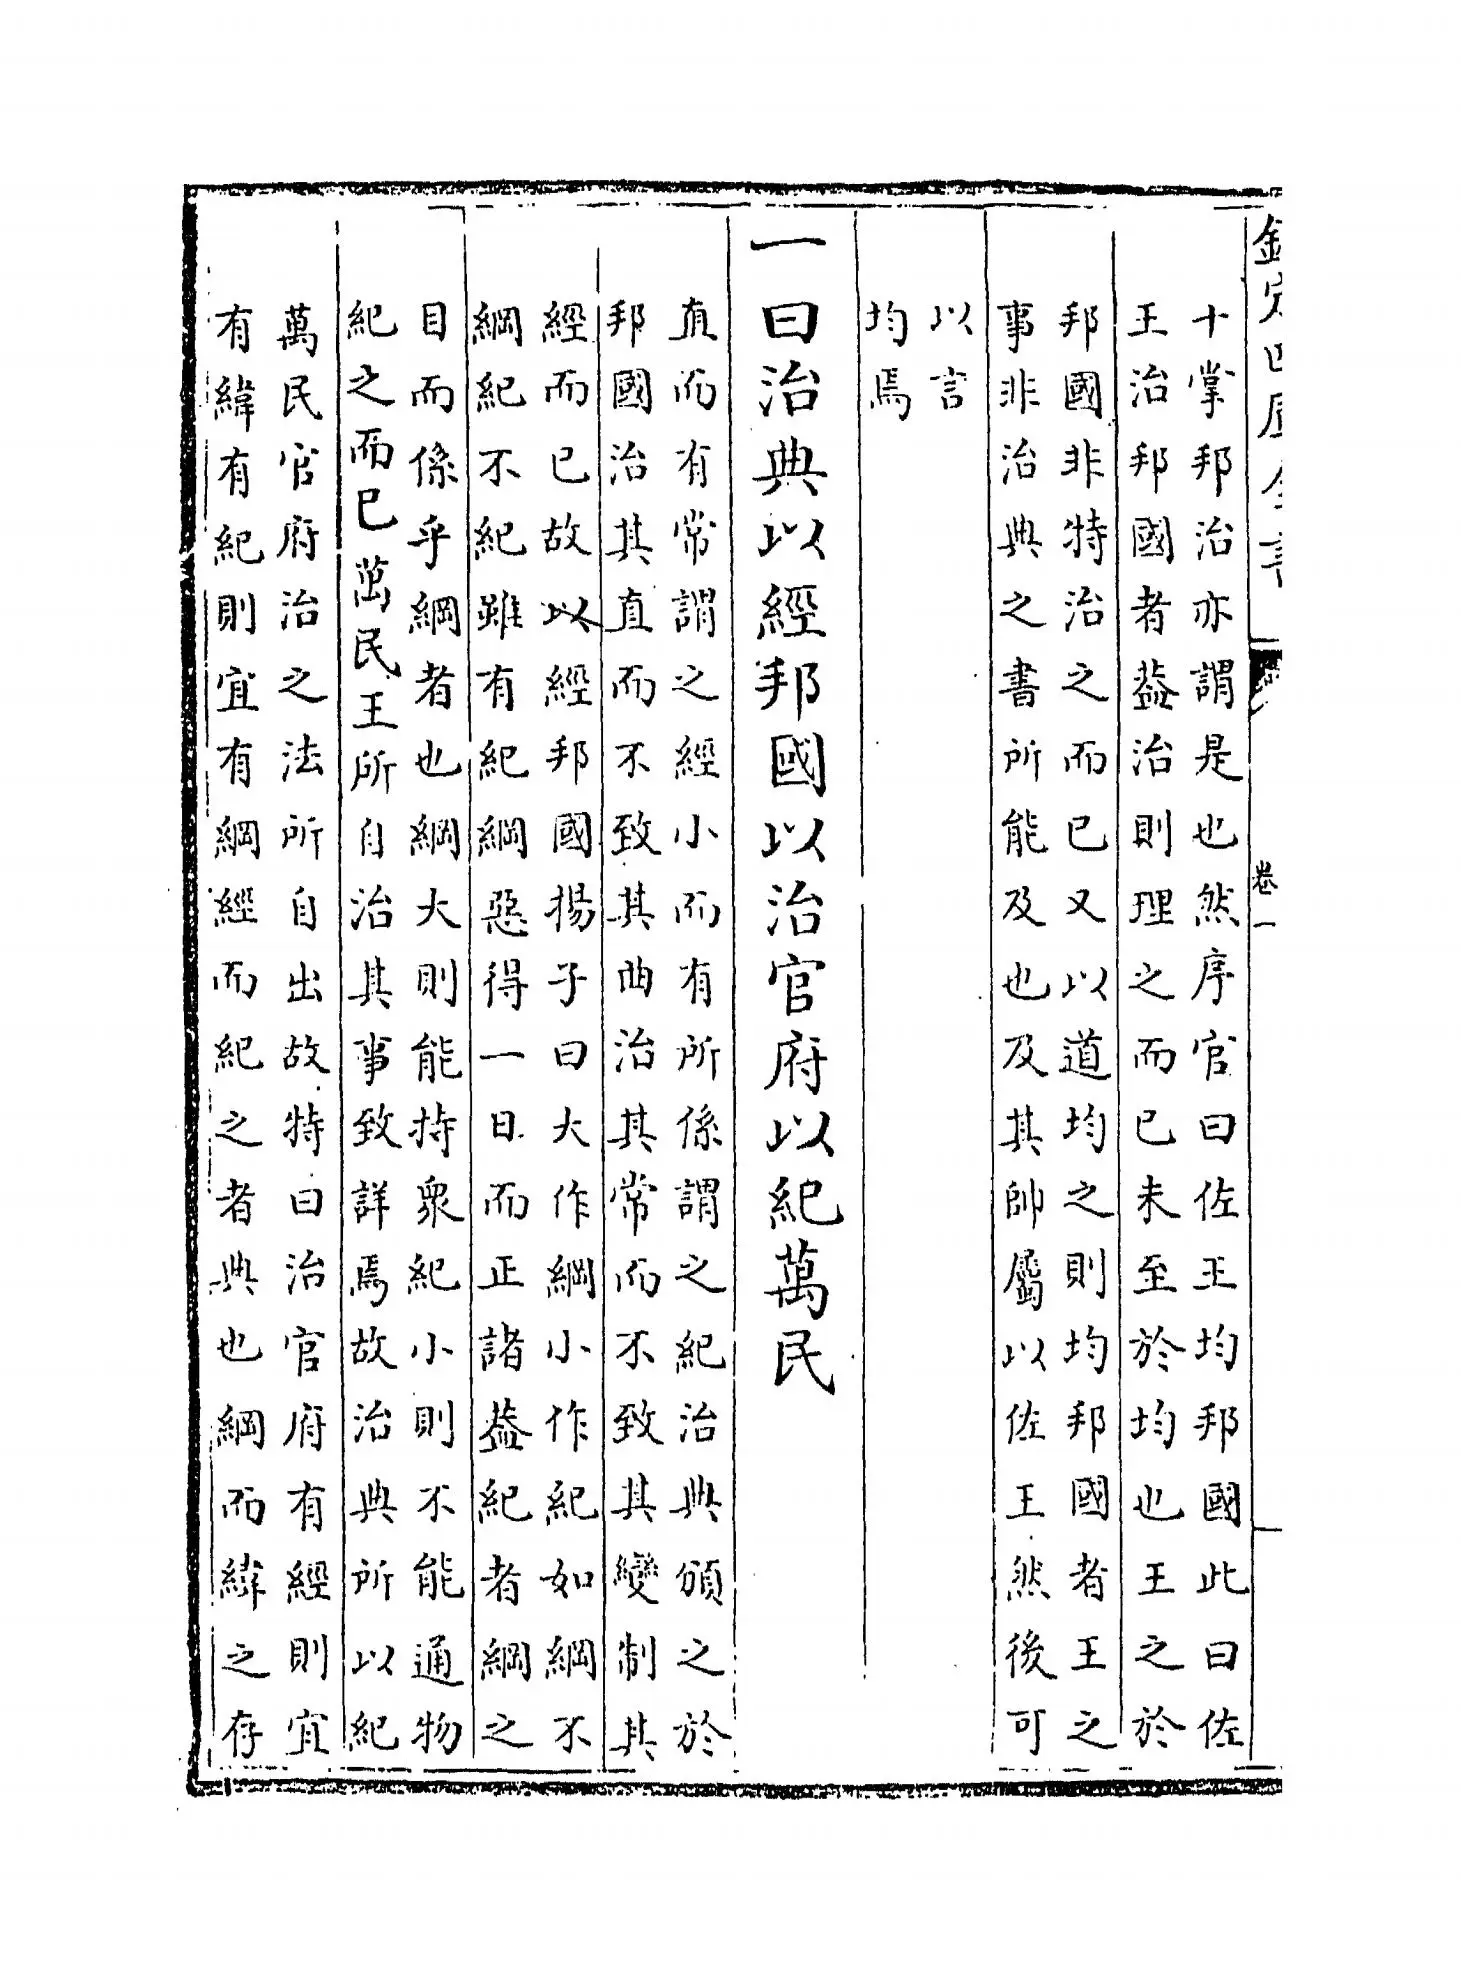 欽定四庫全書
卷一
十掌邦治亦謂是也然序官曰佐王均邦國此曰佐
王治邦國者葢治則理之而已未至於均也王之於
邦國非特治之而已又以道均之則均邦國者王之
事非治典之書所能及也及其帥屬以佐王然後可
以言
均焉
一曰治典以經邦國以治官府以紀萬民
直而有常謂之經小而有所係謂之紀治典頒之於
邦國治其直而不致其曲治其常而不致其變制其
經而已故以經邦國揚子曰大作綱小作紀如綱不
綱紀不紀雖有紀綱惡得一日而正諸葢紀者綱之
目而係乎綱者也綱大則能持衆紀小則不能通物
紀之而已萬民王所自治其事致詳焉故治典所以紀
萬民官府治之法所自出故特曰治官府有經則宜
有緯有紀則宜有綱經而紀之者典也綱而緯之存